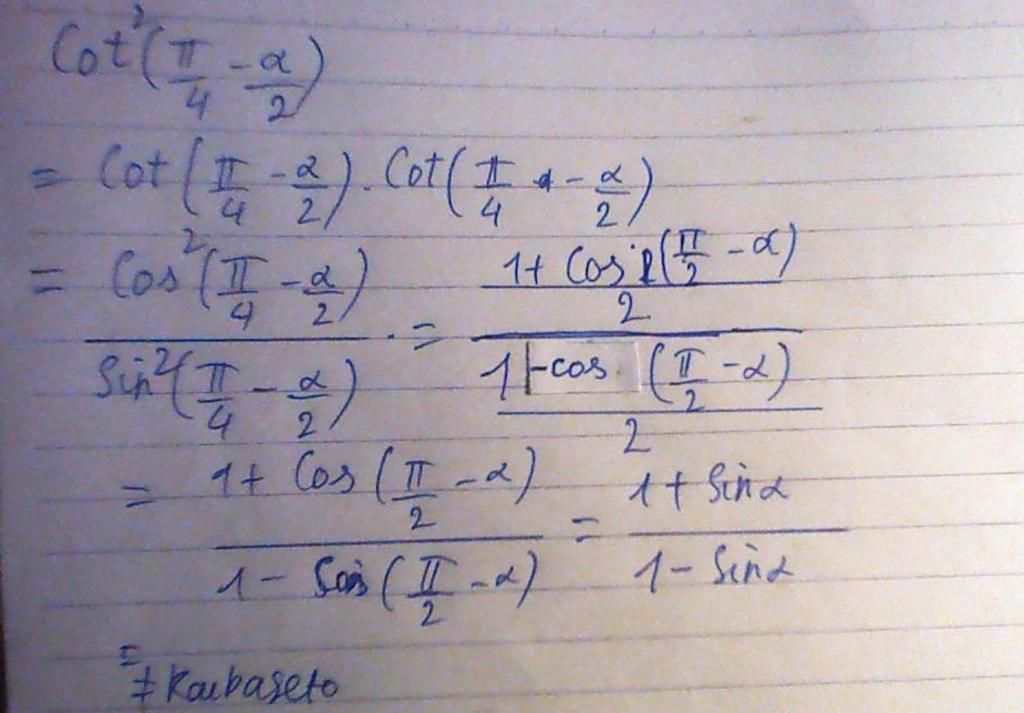 Cot²(π/4 - α/2)
= Cot(π/4 - α/2) . Cot(π/4 - α/2)
= Cos²(π/4 - α/2) / Sin²(π/4 - α/2) . = ((1 + Cos (π/2 - α)) / 2) / ((1 - cos (π/2 - α)) / 2)
= (1 + Cos(π/2 - α)) / (1 - Cos(π/2 - α)) = (1 + Sinα) / (1 - Sinα)
=